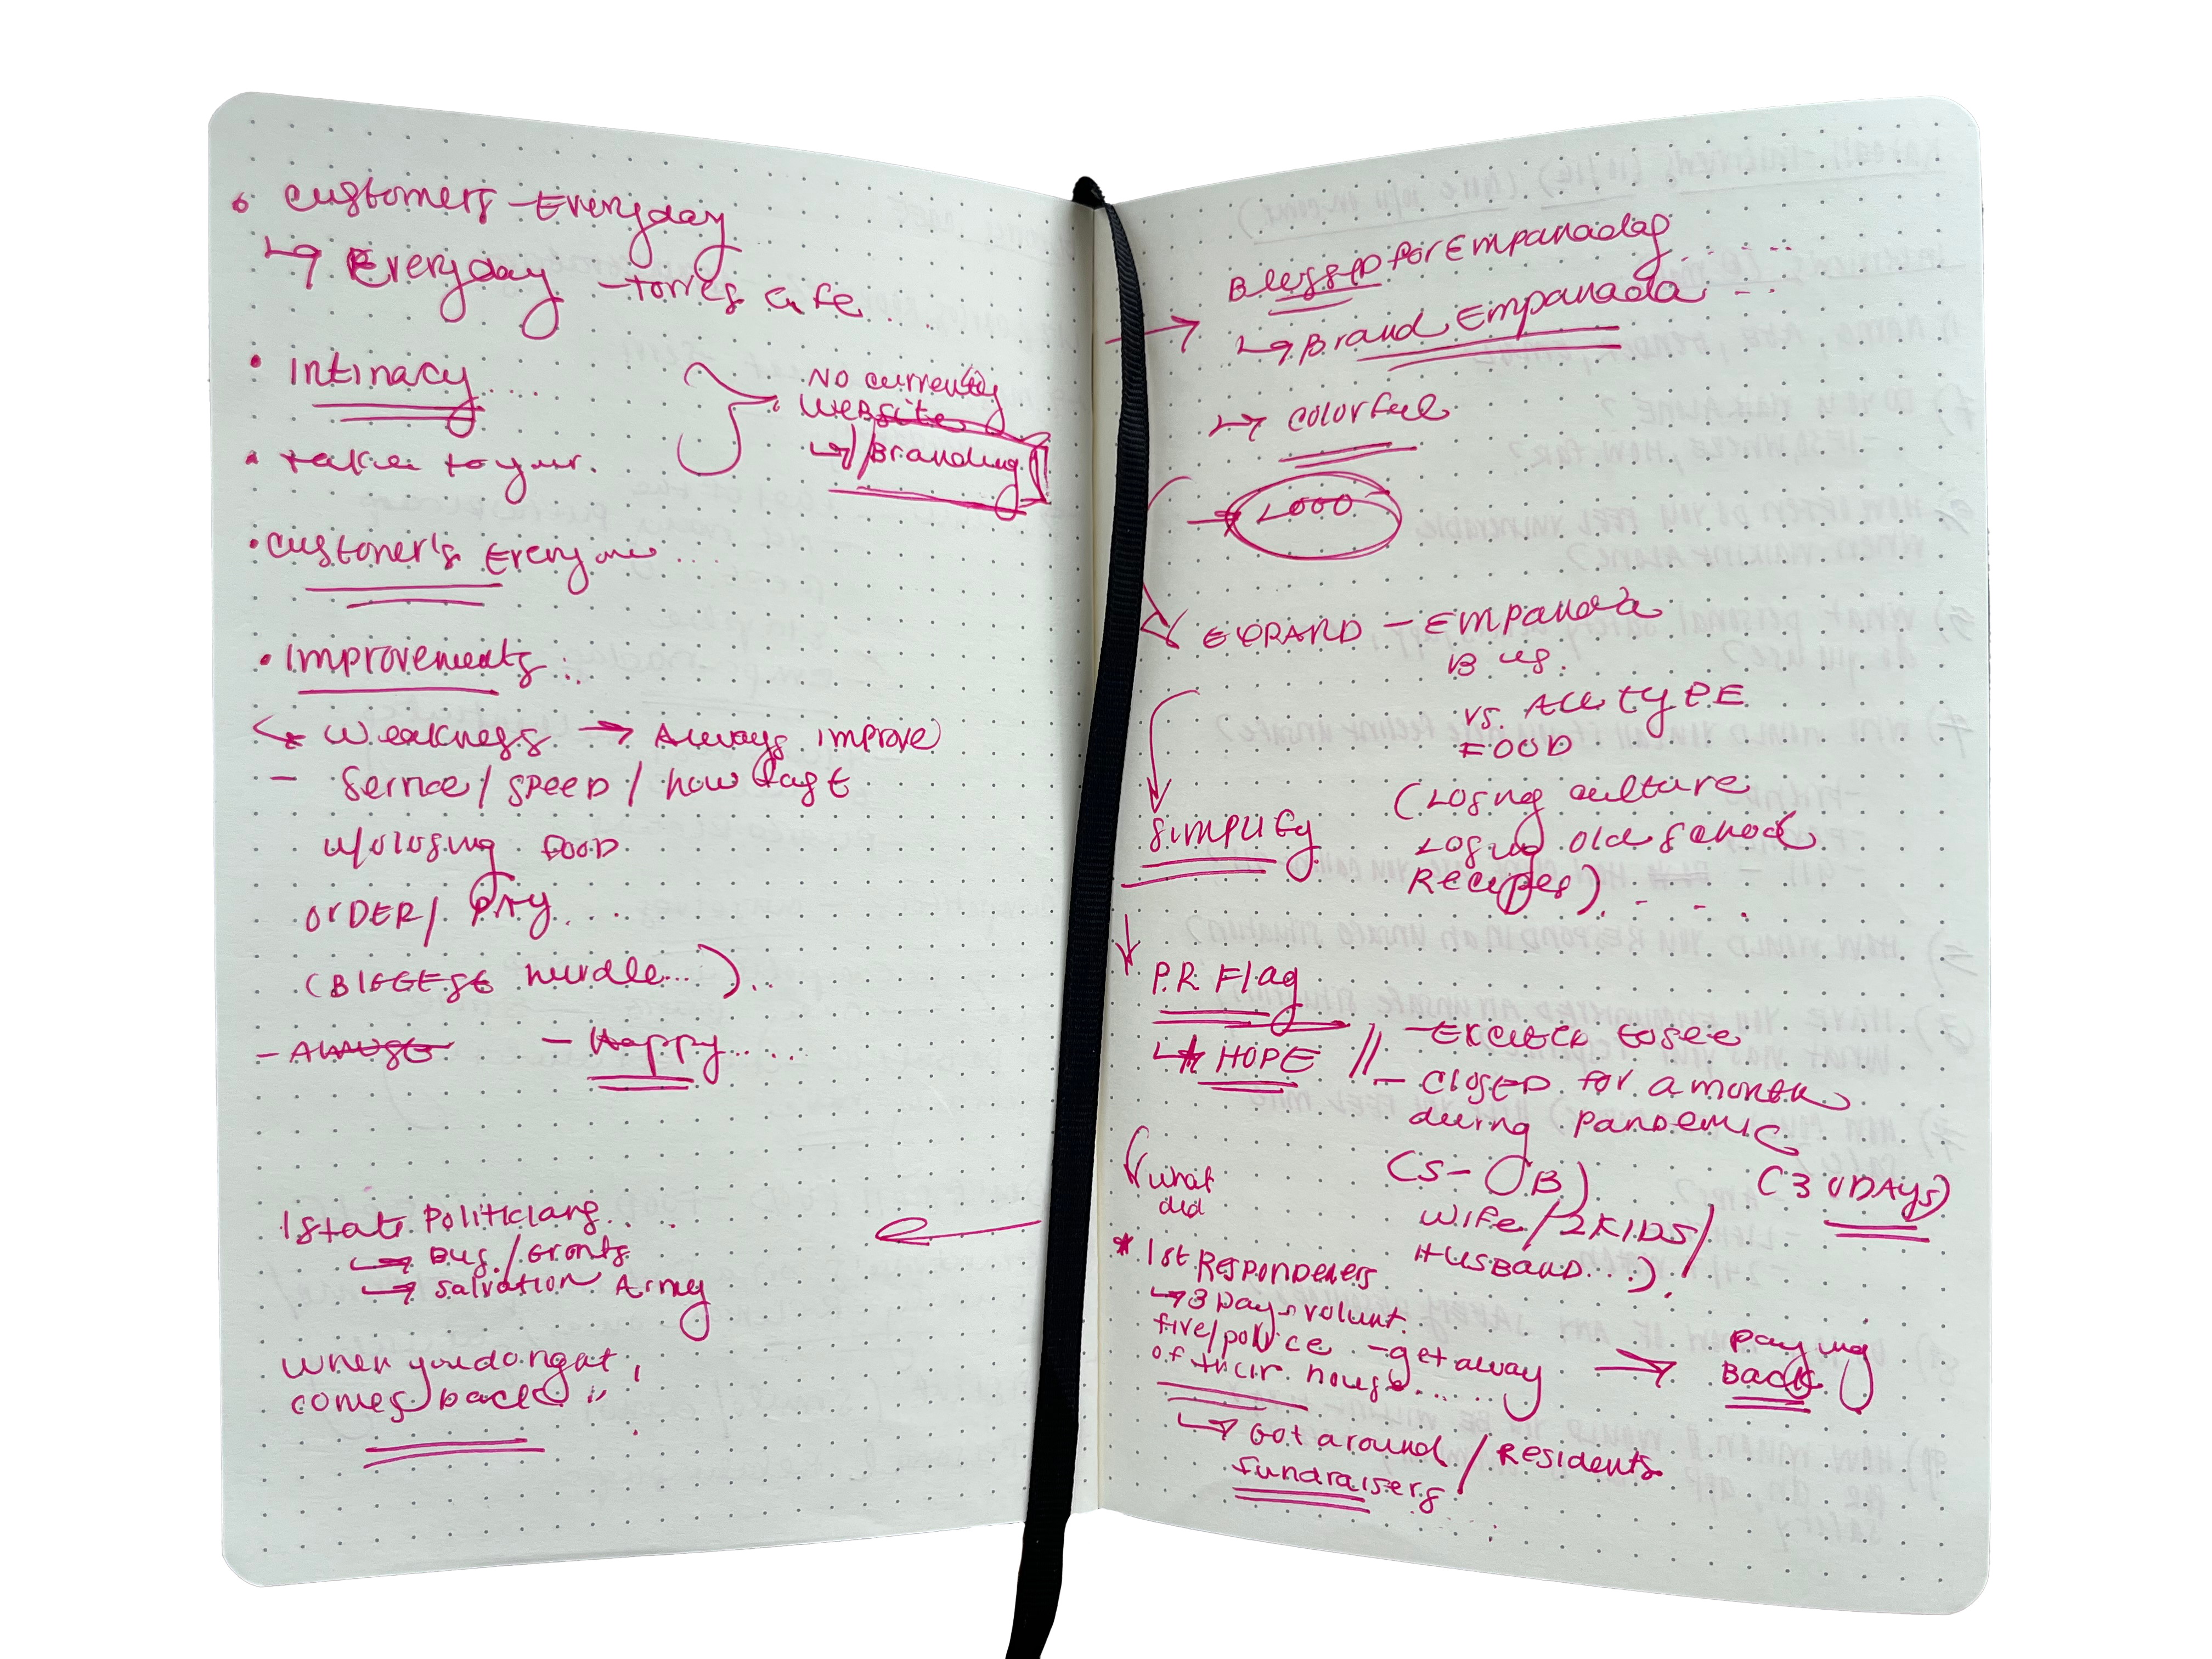 customers - Everyday
↳ Everyday - torres cafe...
• Intinacy....
No currently
website
↳ Branding
• take to your.
• customer's Everyone....
• Improvements...
Weakness → Always improve
- service / SPEED / how fast
w/o losing food
ORDER / PAY....
(BIGGEST hurdle...)..
- Always - Happy.....
1 state Politicians...
→ Bus. / Grants
→ Salvation Army
when you do right,
comes back
→ Blessed for Empanadas....
↳ Brand Empanada...
↳ colorful
→ LOGO
EXPAND - Empanada
Bus.
vs. ALL TYPE
FOOD
(Losing culture
Losing old school
Recipes)....
Simplify
P.R Flag
↳ HOPE // - Excited to see
- closed for a month
during pandemic
(5- B) (30 DAYS)
what
did
wife / 2 KIDS /
HUSBAND...)
* 1st Responderers
↳ 3 Days volunt.
fire/police - get away
of their house....
→ paying
Back
↳ Got around / Residents
fundraisers